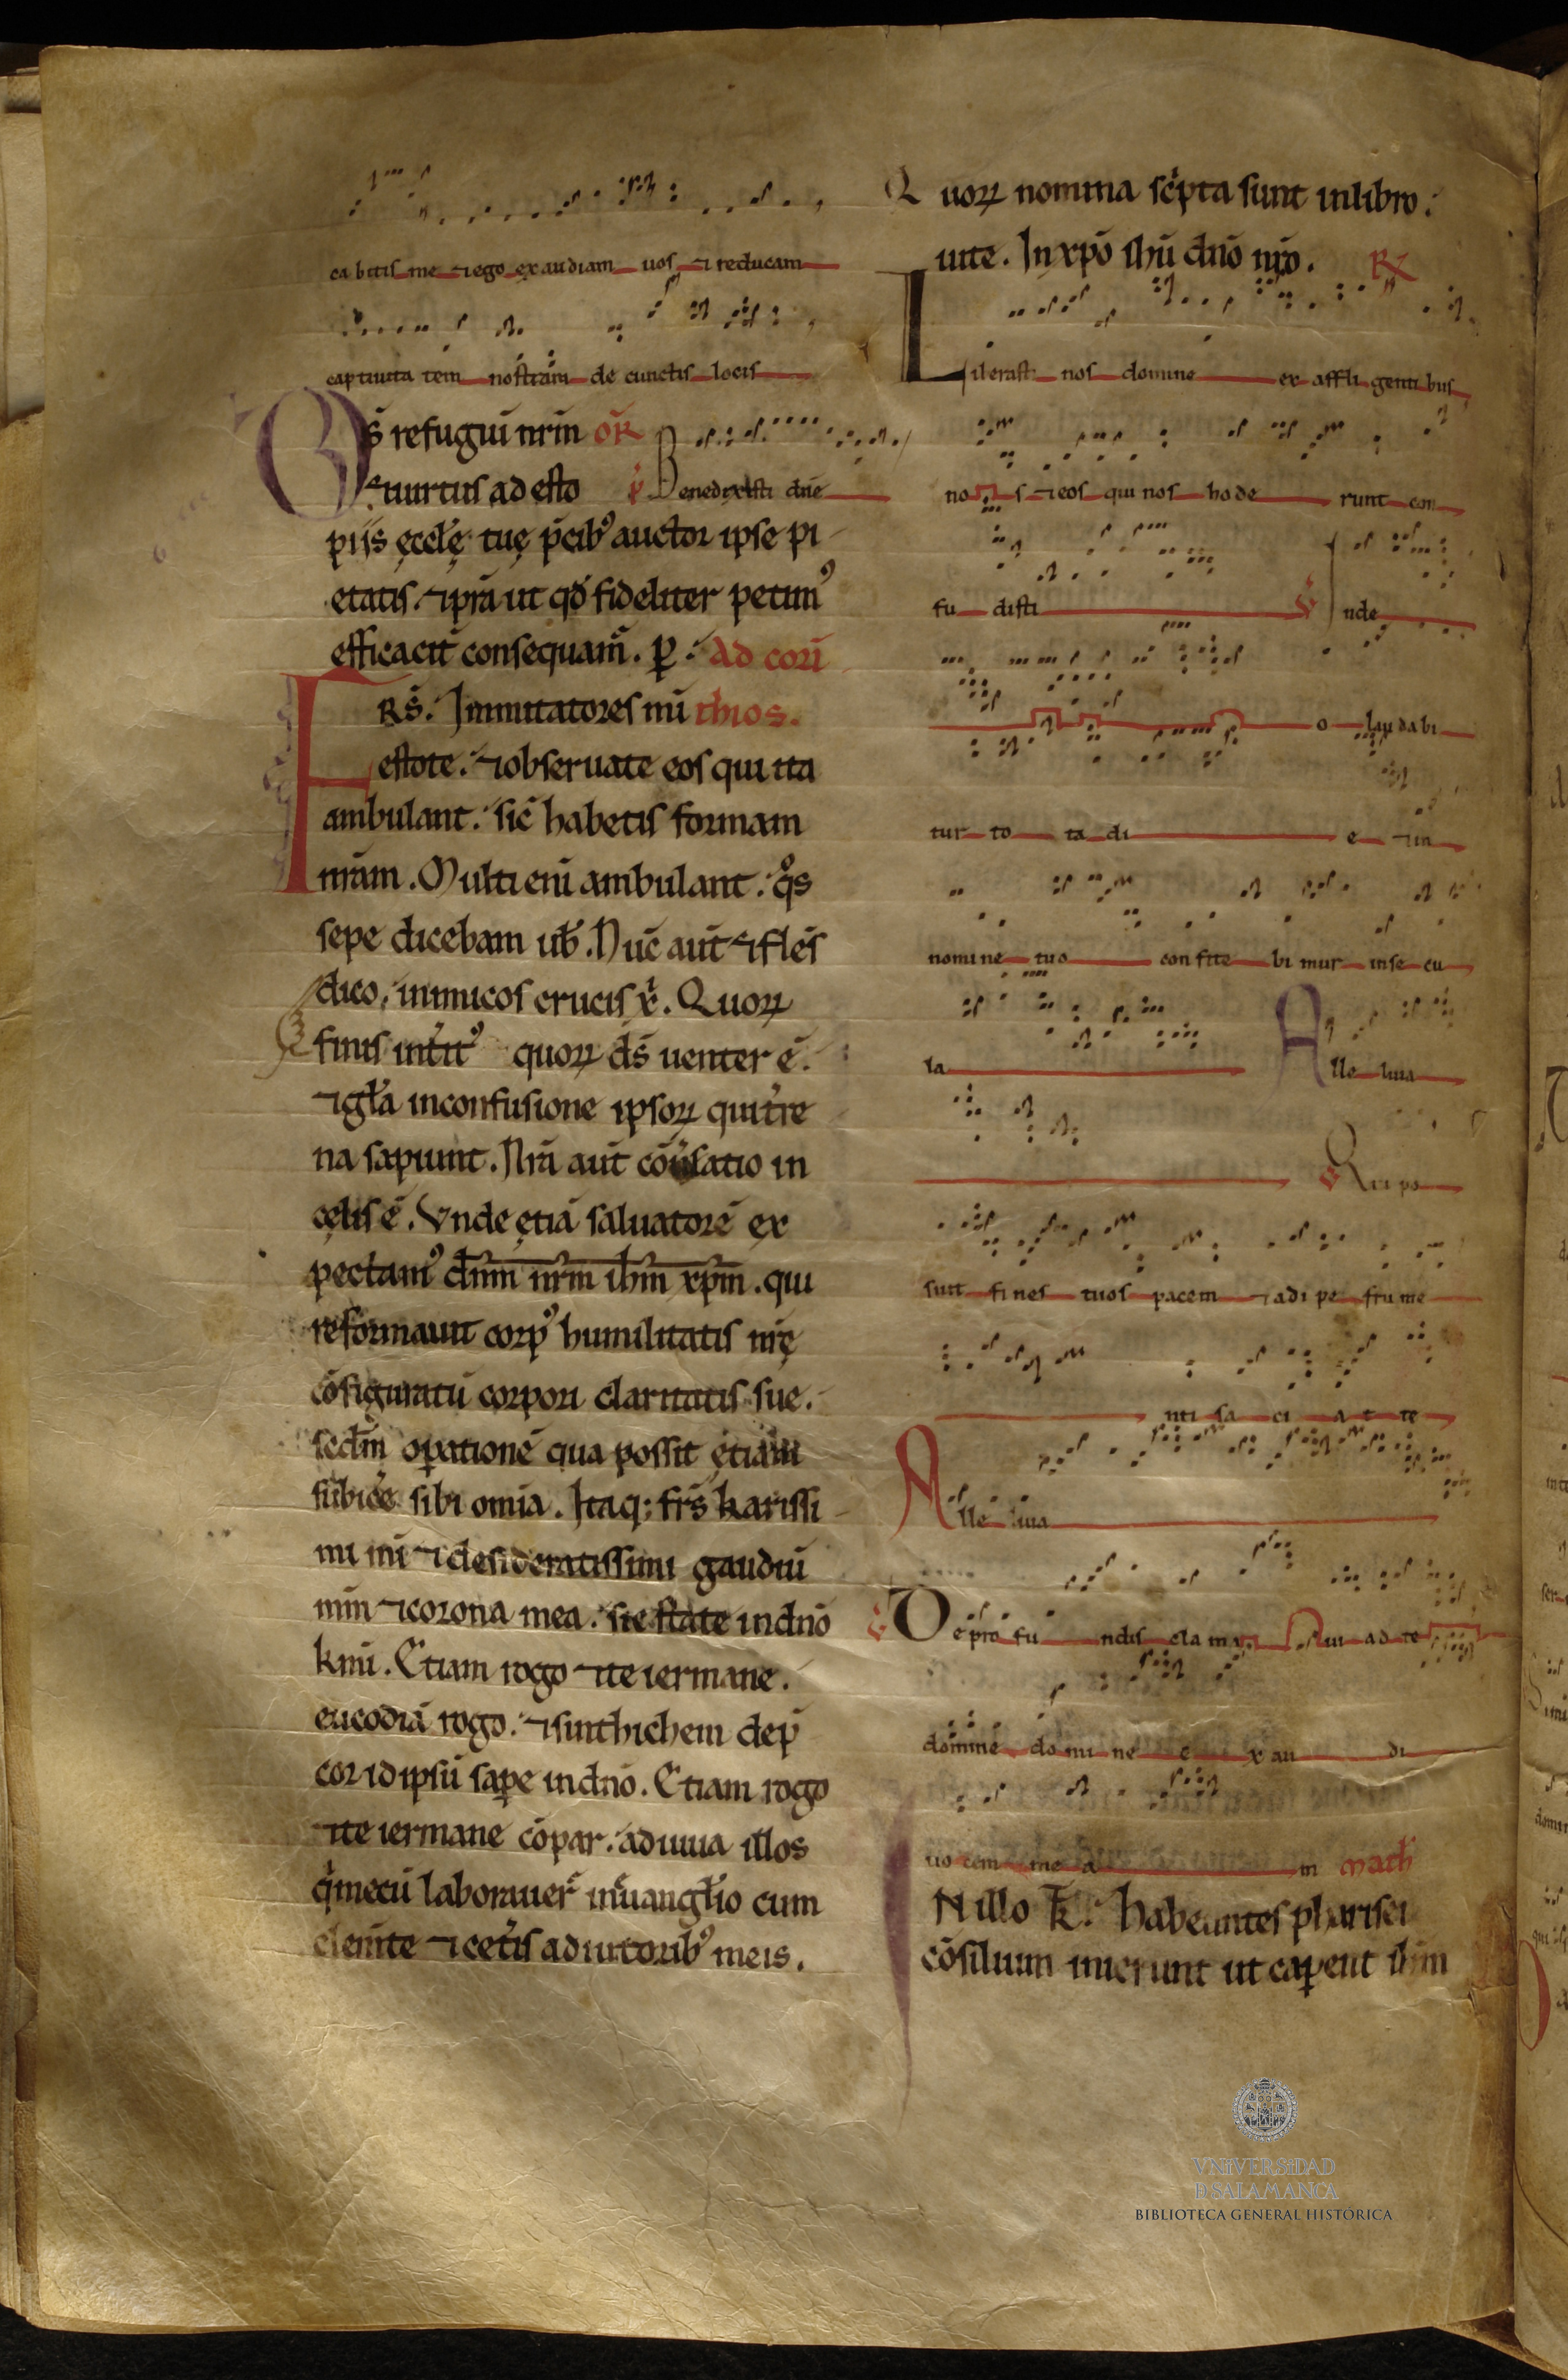 ca bitis me ⁊ ego exaudiam uos ⁊ reducam
captiuita tem nostram de cunctis locis
Ds̄ refugiū nr̄m or̄
⁊ uirtus ad esto v̄ Benedixisti dn̄e
piis ęccłę tuę p̄cib᾽ auctor ipse pi
etatis. ⁊ p̄ra ut qd̄ fideliter petim᾽
efficacit̄ consequam̄. ꝑ. Ad corī
FRS̄. Immitatores mī thios.
estote. ⁊ obseruate eos qui ita
ambulant. sic̄ habetis formam
nr̄am. Multi enī ambulant. qͦs
sepe dicebam ub̄. Nūc aut̄ ⁊ flēs
dico, inimicos crucis xͥ. Quoꝝ
finis int̄it᾽ quoꝝ ds̄ uenter ē.
⁊ gła in confusione ipsoꝝ qui t̄re
na sapiunt. Nr̄a aut̄ cōūsatio in
cęlis ē. Vnde ętiā saluatorē ex
pectam᾽ dn̄m nr̄m ih̄m xp̄m. qui
reformauit corp᾽ humilitatis nr̄ę
cōfiguratū corpori claritatis sue.
secd̄m oꝑationē qua possit ętiam
subic̄e sibi omīa. Itaq; frs̄ karissi
mi mī ⁊ desideratissimi gaudiū
mm̄ ⁊ corona mea. sic state in dn̄o
km̄i. Etiam rogo ⁊ te iermane.
eucodiā rogo. ⁊ sinthichem dep̄
cor id ipsū saꝑe in dn̄o. Etiam rogo
⁊ te iermane cōpar. adiuua illos
q̄ mecū laborauer̄ in euanglīo cum
clem̄te ⁊ cet̄is adiutorib᾽ meis.
Quoꝝ nomina sc̄pta sunt in libro
uite. In xp̄o ihū dn̄o nr̄o. R
Liberasti nos domine ex affli genti bus
no s ⁊ eos qui nos ho de runt con
fu disti v̄ Inde
o lau da bi
tur to ta di e ⁊ in
nomi ne tuo con fite bi mur in se cu
la Alle luia
v̄ Qui po
suit fi nes tuos pacem ⁊ adi pe frume
nti sa ci a t te
Alle luia
v̄ De pro fu ndis cla ma ui ad te
domine do mi ne e x au di
uo cem me a m math̄
IN illo t̄. habeuntes pharisei
cōsilium inierunt ut caꝑent ih̄m
VNiVERSiDAD
D SALAMANCA
BIBLIOTECA GENERAL HISTÓRICA